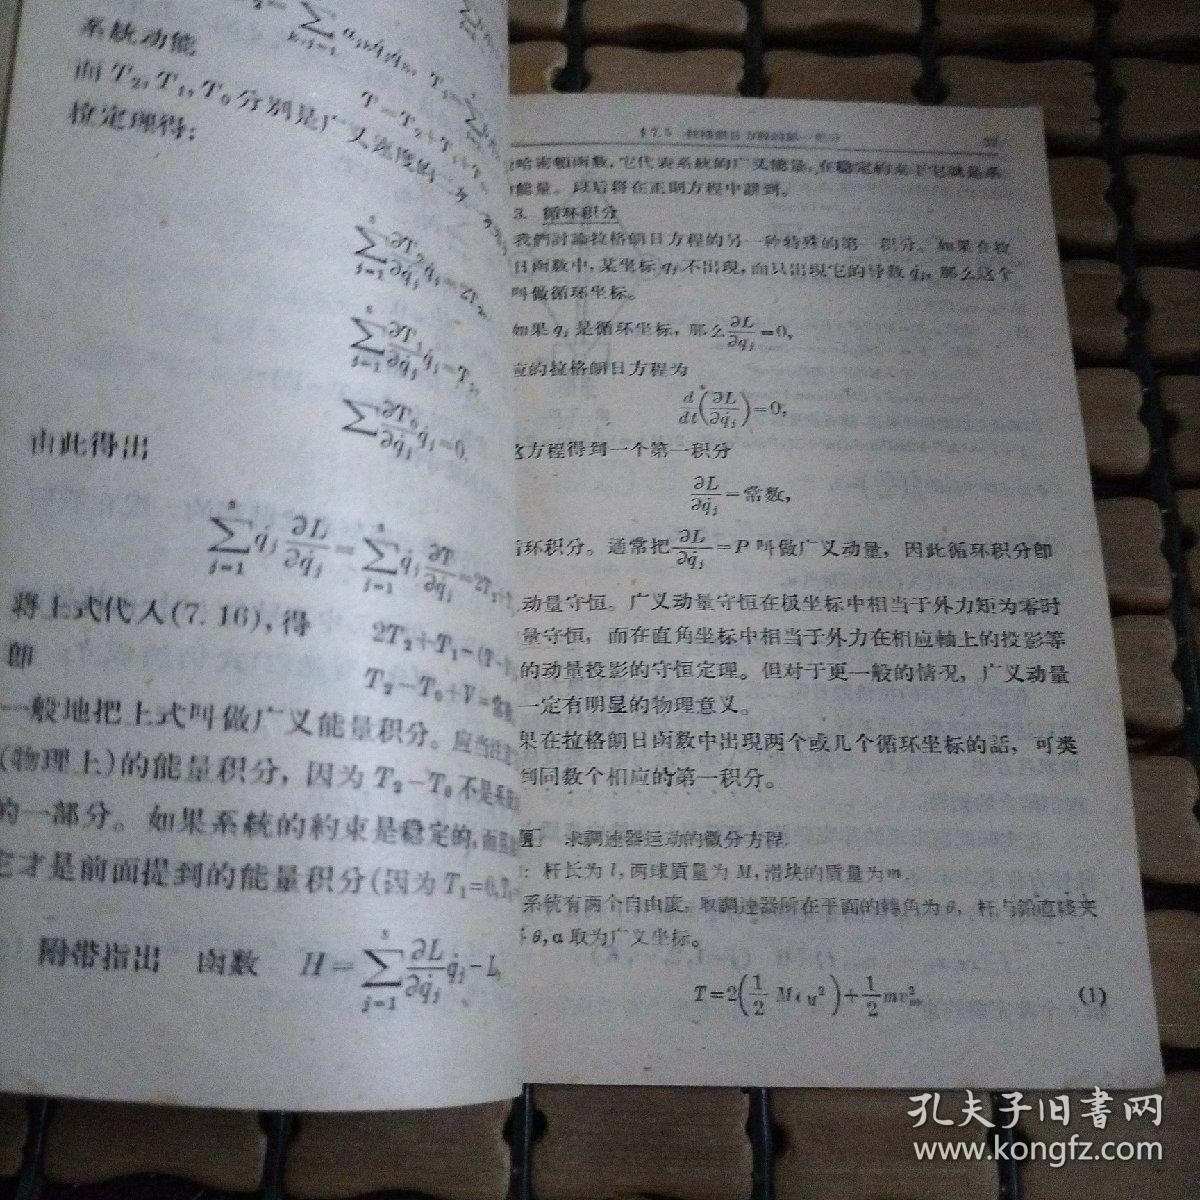 系統动能
T=T₂+T₁+T₀
而 T₂, T₁, T₀ 分别是广义速度的二次
拉定理得:
\sum_{j=1}^{s} \frac{∂T₂}{∂q̇ⱼ} q̇ⱼ=2T₂,
\sum_{j=1}^{s} \frac{∂T₁}{∂q̇ⱼ} q̇ⱼ=T₁,
\sum \frac{∂T₀}{∂q̇ⱼ} q̇ⱼ=0.
由此得出
\sum_{j=1}^{s} q̇ⱼ \frac{∂L}{∂q̇ⱼ}=\sum_{j=1}^{s} q̇ⱼ \frac{∂T}{∂q̇ⱼ}=2T₂+T
將上式代入(7.16), 得
2T₂+T₁-(T-
即
T₂-T₀+V=常数
一般地把上式叫做广义能量积分。应当注意
(物理上)的能量积分, 因为 T₂-T₀ 不是系統
的一部分。如果系統的約束是稳定的, 而且
它才是前面提到的能量积分(因为 T₁=0, T₀=
附带指出 函数 H=\sum_{j=1}^{s} \frac{∂L}{∂q̇ⱼ} q̇ⱼ-L,
§7.5 拉格朗日方程的第一积分
哈密頓函数, 它代表系統的广义能量, 在稳定約束下它就是系
能量。以后将在正則方程中讲到。
3. 循环积分
我們討論拉格朗日方程的另一种特殊的第一积分。如果在拉
日函数中, 某坐标 qⱼ 不出現, 而只出現它的导数 q̇ⱼ, 那么这个
叫做循环坐标。
如果 qⱼ 是循环坐标, 那么 \frac{∂L}{∂qⱼ}=0,
应的拉格朗日方程为
\frac{d}{dt}(\frac{∂L}{∂q̇ⱼ})=0,
这方程得到一个第一积分
\frac{∂L}{∂q̇ⱼ}=常数,
循环积分。通常把 \frac{∂L}{∂q̇ⱼ}=P 叫做广义动量, 因此循环积分即
动量守恒。广义动量守恒在极坐标中相当于外力矩为零时
量守恒, 而在直角坐标中相当于外力在相应軸上的投影等
的动量投影的守恒定理。但对于更一般的情况, 广义动量
一定有明显的物理意义。
果在拉格朗日函数中出現两个或几个循环坐标的話, 可类
到同数个相应的第一积分。
題 求調速器运动的微分方程,
: 杆长为 l, 两球质量为 M, 滑块的质量为 m.
系統有两个自由度, 取調速器所在平面的轉角为 θ, 杆与鉛直綫夹
θ, α 取为广义坐标。
T=2(\frac{1}{2} Mv_M²)+\frac{1}{2}mv_m² (1)
孔夫子旧书网
www.kongfz.com